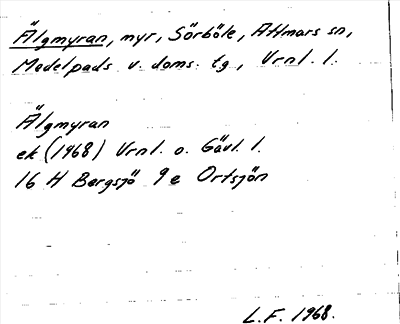 Älgmyran, myr, Sörböle, Attmars sn,
Medelpads v. doms. tg, Vrnl. l.
Älgmyran
ek (1968) Vrnl. o. Gävl. l.
16 H Bergsjö 9 e Ortsjön
L.F. 1968.